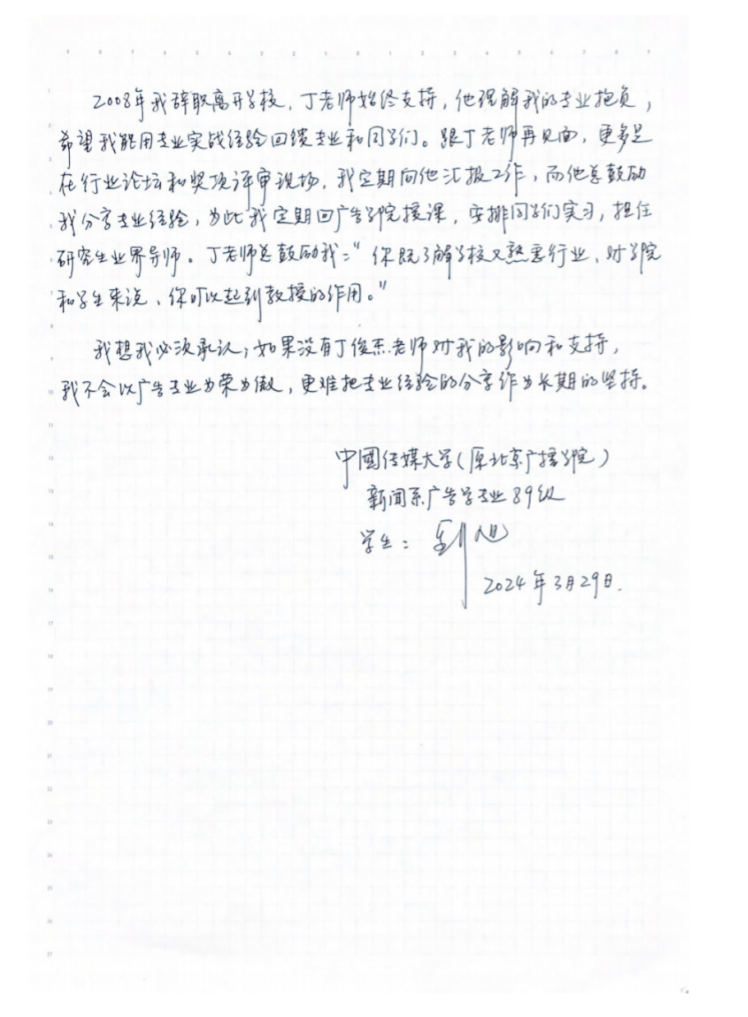 2008年我辞职离开学校，丁老师始终支持，他理解我的专业抱负，
希望我能用专业实战经验回馈专业和同学们。跟丁老师再见面，更多是
在行业论坛和奖项评审现场，我定期向他汇报工作，而他总鼓励
我分享专业经验，为此我定期回广告学院授课，安排同学们实习，担任
研究生业界导师。丁老师总鼓励我：“你既了解学校又熟悉行业，对学院
和学生来说，你可以起到教授的作用。”
我想我必须承认，如果没有丁俊杰老师对我的影响和支持，
我不会以广告专业为荣为傲，更难把专业经验的分享作为长期的坚持。
中國传媒大学（原北京广播学院）
新闻系广告学专业89级
学生：刘旭
2024年3月29日.